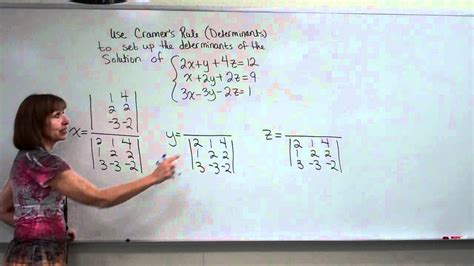 Use Cramer's Rule (Determinants)
to set up the determinants of the
Solution of { 2x+y+4z=12
x+2y+2z=9
3x-3y-2z=1
x= | 1 4 |
| 2 2 |
| -3 -2 |
| 2 1 4 |
| 1 2 2 |
| 3 -3 -2 |
y=
| 2 1 4 |
| 1 2 2 |
| 3 -3 -2 |
z=
| 2 1 4 |
| 1 2 2 |
| 3 -3 -2 |